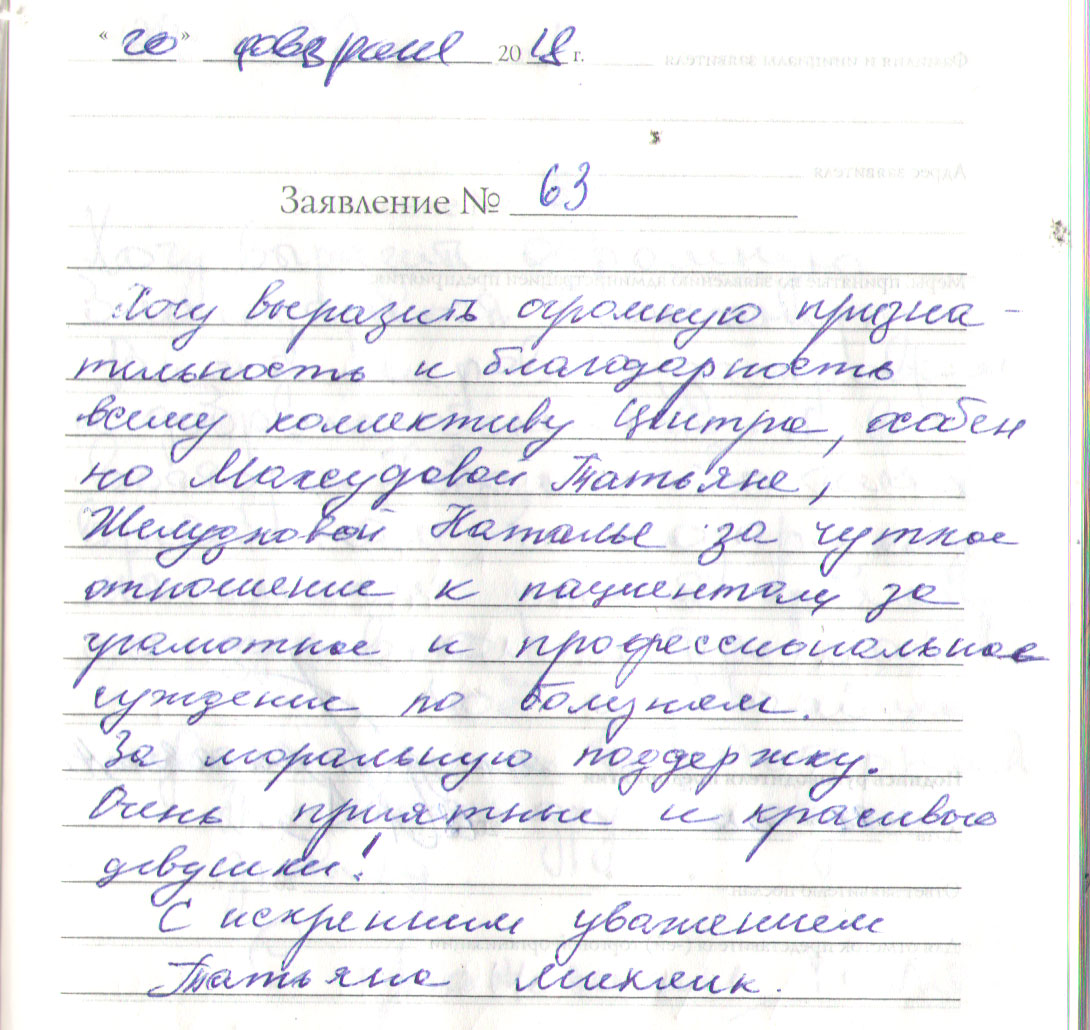 "20" февраля 2018 г.
Заявление № 63
Хочу выразить огромную призна-
тельность и благодарность
всему коллективу Центра, особен
но Максудовой Татьяне,
Желудковой Наталье за чуткое
отношение к пациентам, за
грамотное и профессиональное
суждение по болезням.
За моральную поддержку.
Очень приятные и красивые
девушки!
С искренним уважением
Татьяна